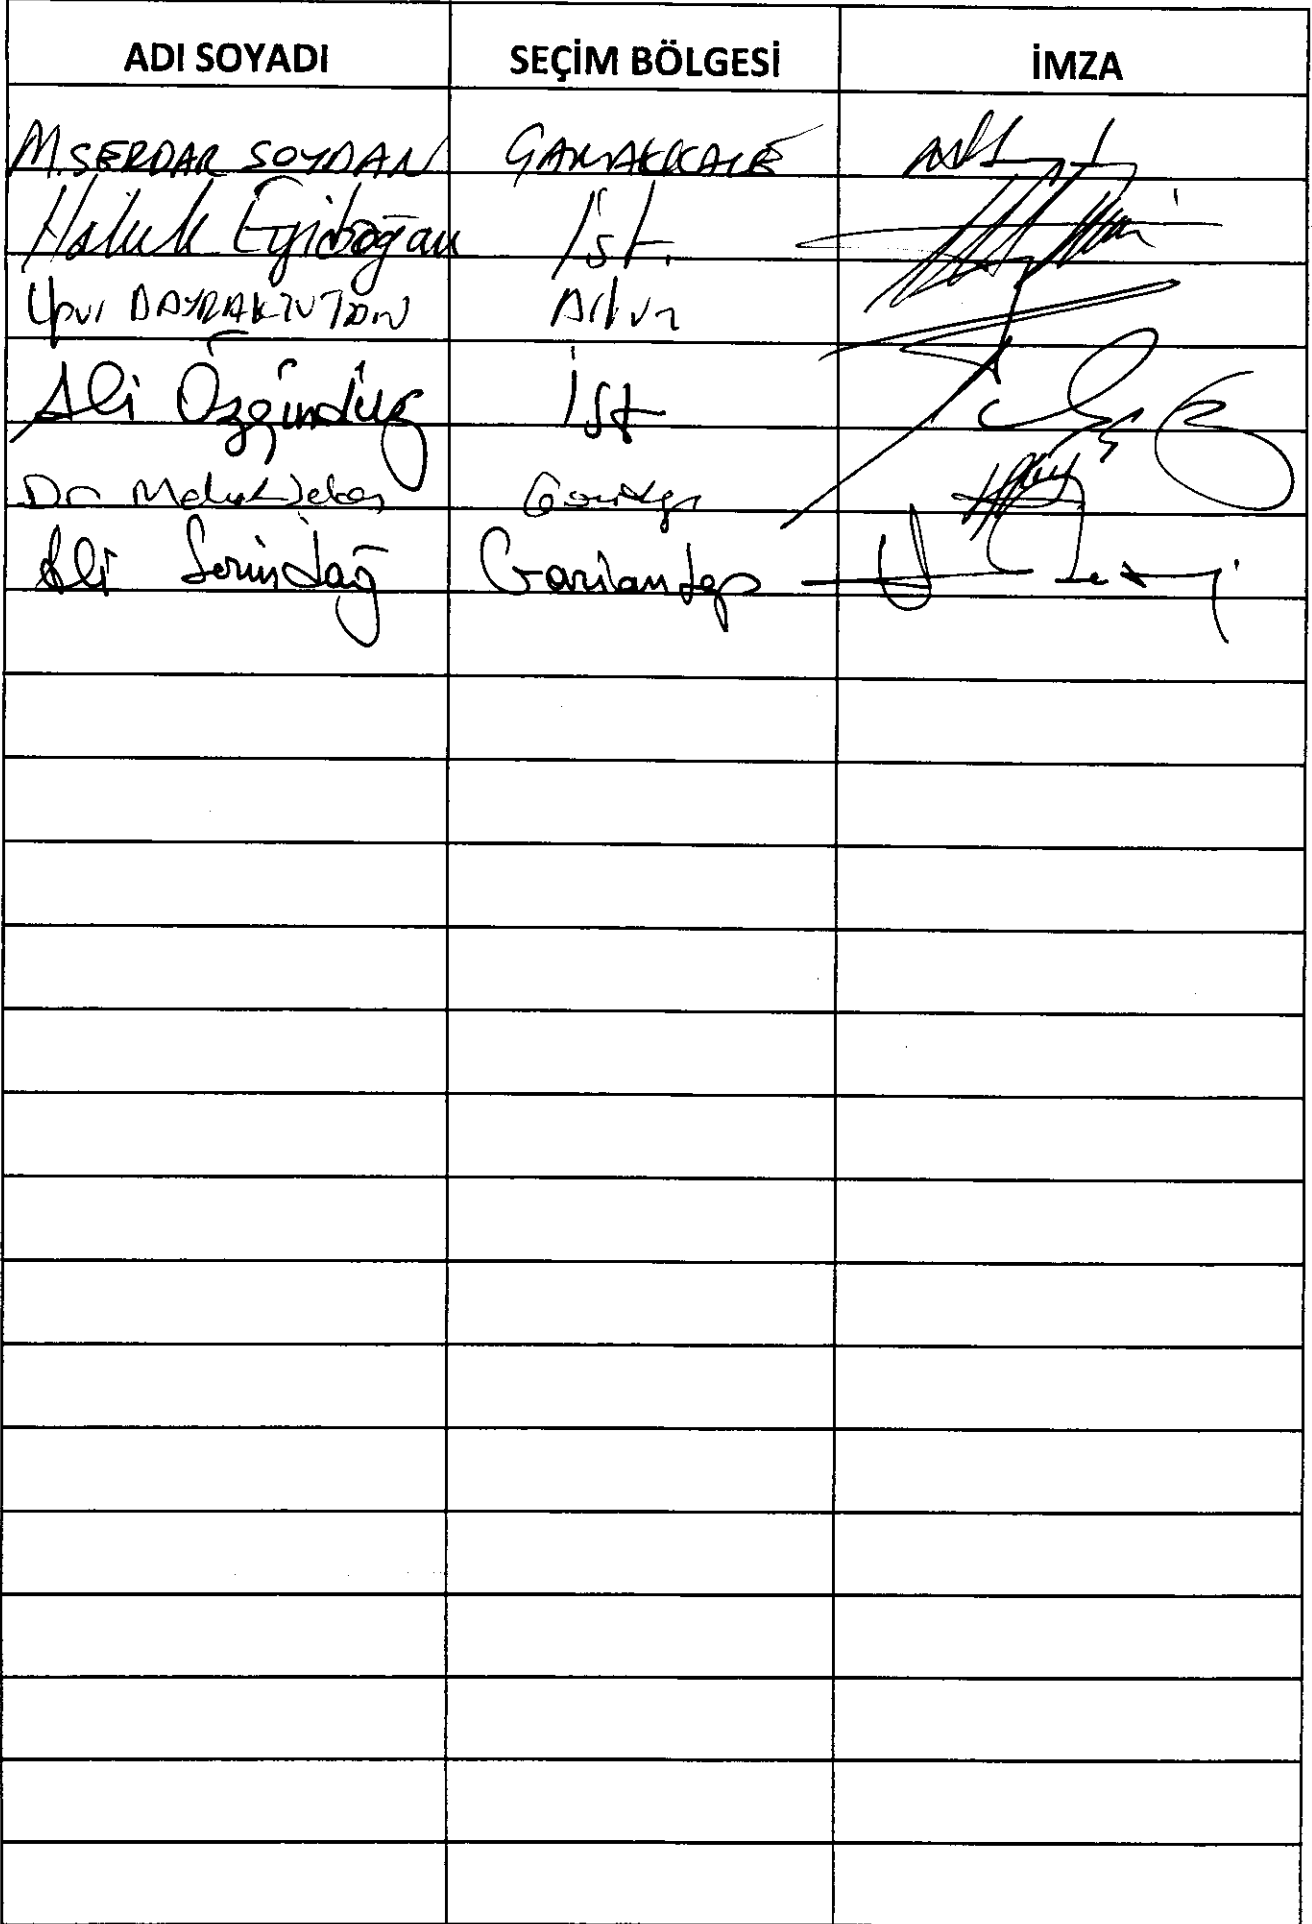 ADI SOYADI SEÇİM BÖLGESİ İMZA
M. SERDAR SOYDAN ÇANAKKALE
Haluk Eyidoğan İst.
Uğur BAYRAKTUTAN Artvin
Ali Özgündüz İst
Dr Mehmet Şeker Gaziantep
Ali Serindağ Gaziantep